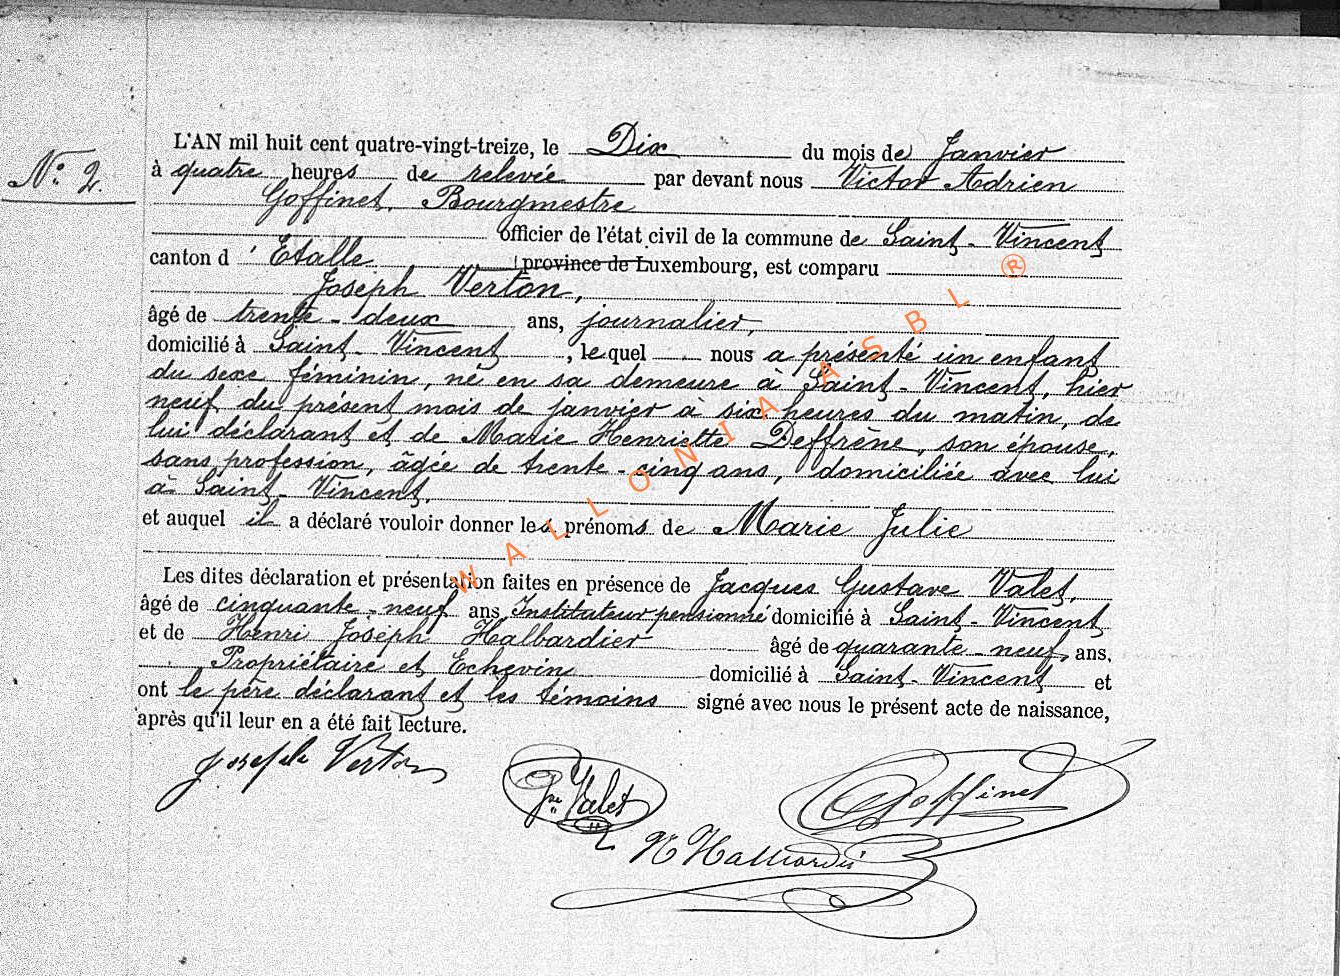 L'AN mil huit cent quatre-vingt-treize, le Dix du mois de Janvier
N.° 2.
à quatre heures de relevée par devant nous Victor Adrien
Goffinet, Bourgmestre
officier de l'état civil de la commune de Saint-Vincent
canton d'Etalle province de Luxembourg, est comparu
Joseph Verton,
âgé de trente-deux ans, journalier,
domicilié à Saint-Vincent, lequel nous a présenté un enfant
du sexe féminin, né en sa demeure à Saint-Vincent, hier
neuf du présent mois de janvier à six heures du matin, de
lui déclarant et de Marie Henriette Deffrène, son épouse,
sans profession, âgée de trente-cinq ans, domiciliée avec lui
à Saint-Vincent.
et auquel il a déclaré vouloir donner les prénoms de Marie Julie
Les dites déclaration et présentation faites en présence de Jacques Gustave Valet,
âgé de cinquante-neuf ans Instituteur pensionné domicilié à Saint-Vincent
et de Henri Joseph Halbardier âgé de quarante-neuf ans,
Propriétaire et Echevin domicilié à Saint-Vincent et
ont le père déclarant et les témoins signé avec nous le présent acte de naissance,
après qu'il leur en a été fait lecture.
Joseph Verton
Valet
Goffinet
WALLONIA ASBL ®